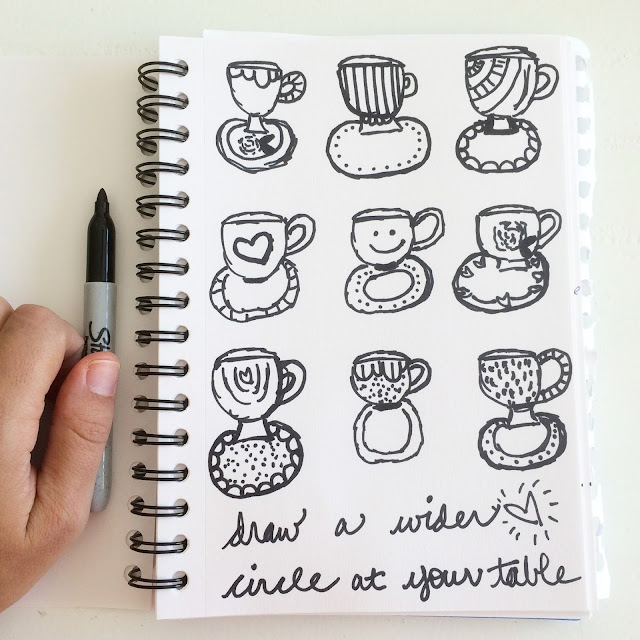 draw a wider
circle at your table